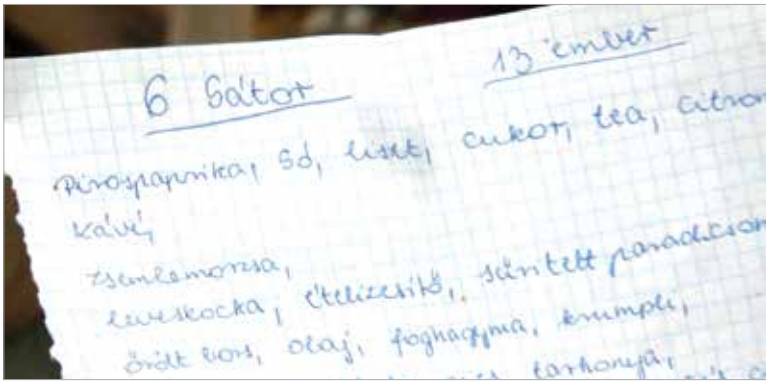 6 Sátor 13 ember
pirospaprika, só, liszt, cukor, tea, citrom
kávé,
zsemlemorzsa,
leveskocka, ételizesitő, sűritett paradicsom
őrölt bors, olaj, foghagyma, krumpli,
tarhonya,